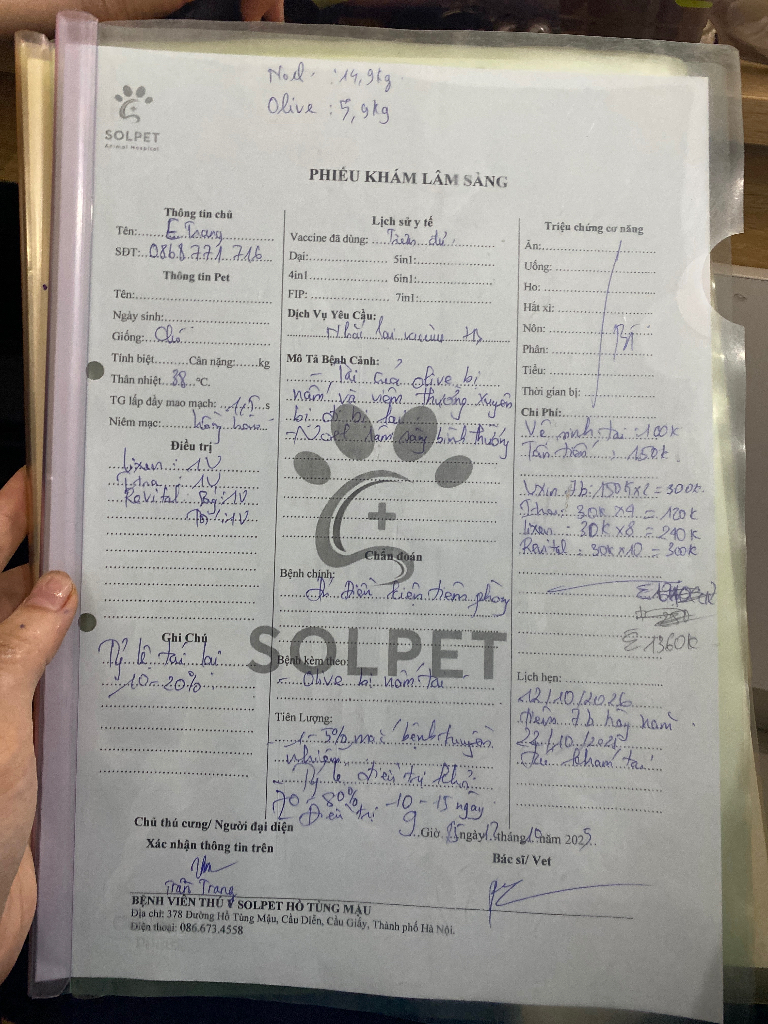 Noel : 14,9kg
Olive : 5,9kg
SOLPET
Animal Hospital
PHIẾU KHÁM LÂM SÀNG
Thông tin chủ
Tên: E Trang
SĐT: 0868.771.716
Thông tin Pet
Tên:
Ngày sinh:
Giống: Chó
Tính biệt Cân nặng: kg
Thân nhiệt 38 °C.
TG lấp đầy mao mạch: 1,5 s
Niêm mạc: hồng
Điều trị
Lixen : 1V
: 1V
Revital 8g : 1V
: 1V
Ghi Chú
Tỷ lệ tái lại
10 - 20%
Lịch sử y tế
Vaccine đã dùng: Tiêm đủ
Dại: 5in1:
4in1 6in1:
FIP: 7in1:
Dịch Vụ Yêu Cầu:
Nhắc lại vacxin 7b
Mô Tả Bệnh Cảnh:
- Tai của Olive bị
nấm và viêm thường xuyên
bị đi bị lại
- Noel lâm sàng bình thường
Chẩn đoán
Bệnh chính:
Đủ điều kiện tiêm phòng
SOLPET
Bệnh kèm theo:
Olive bị nấm tai
Tiên Lượng:
1 - 5% mắc bệnh truyền
nhiễm
- Tỷ lệ điều trị khỏi
70 - 80%
Điều trị 10 - 15 ngày
Triệu chứng cơ năng
Ăn:
Uống:
Ho:
Hắt xì:
Nôn:
Phân:
Tiểu:
Thời gian bị:
BT
Chi Phí:
Vệ sinh tai : 100K
: 150K
Vxin 7b : 150K x 2 = 300K
: 30K x 4 = 120K
Lixen : 30K x 8 = 240K
Revital : 30K x 10 = 300K
Σ 1360K
Lịch hẹn:
12/10/2026
Tiêm 7b hàng năm
22/10/2025
tái khám tai
9 Giờ 15 ngày 12 tháng 10 năm 2025
Chủ thú cưng/ Người đại diện
Xác nhận thông tin trên
Trần Trang
Bác sĩ/ Vet
BỆNH VIỆN THÚ Y SOLPET HỒ TÙNG MẬU
Địa chỉ: 378 Đường Hồ Tùng Mậu, Cầu Diễn, Cầu Giấy, Thành phố Hà Nội.
Điện thoại: 086.673.4558